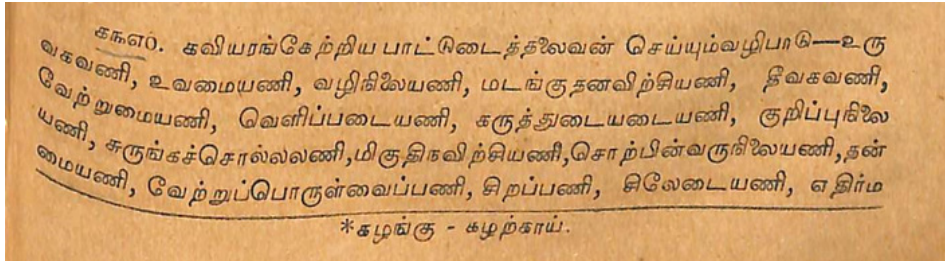 கரு௭0. கவியரங்கேற்றிய பாட்டுடைத்தலைவன் செய்யும்வழிபாடு—உரு
வகவணி, உவமையணி, வழிநிலையணி, மடங்குதனவிற்சியணி, தீவகவணி,
வேற்றுமையணி, வெளிப்படையணி, கருத்துடையடையணி, குறிப்புநிலை
யணி, சுருங்கச்சொல்லலணி,மிகுதிநவிற்சியணி,சொற்பின்வருநிலையணி,தன்
மையணி, வேற்றுப்பொருள்வைப்பணி, சிறப்பணி, சிலேடையணி, எதிர்ம
*கழங்கு - கழற்காய்.